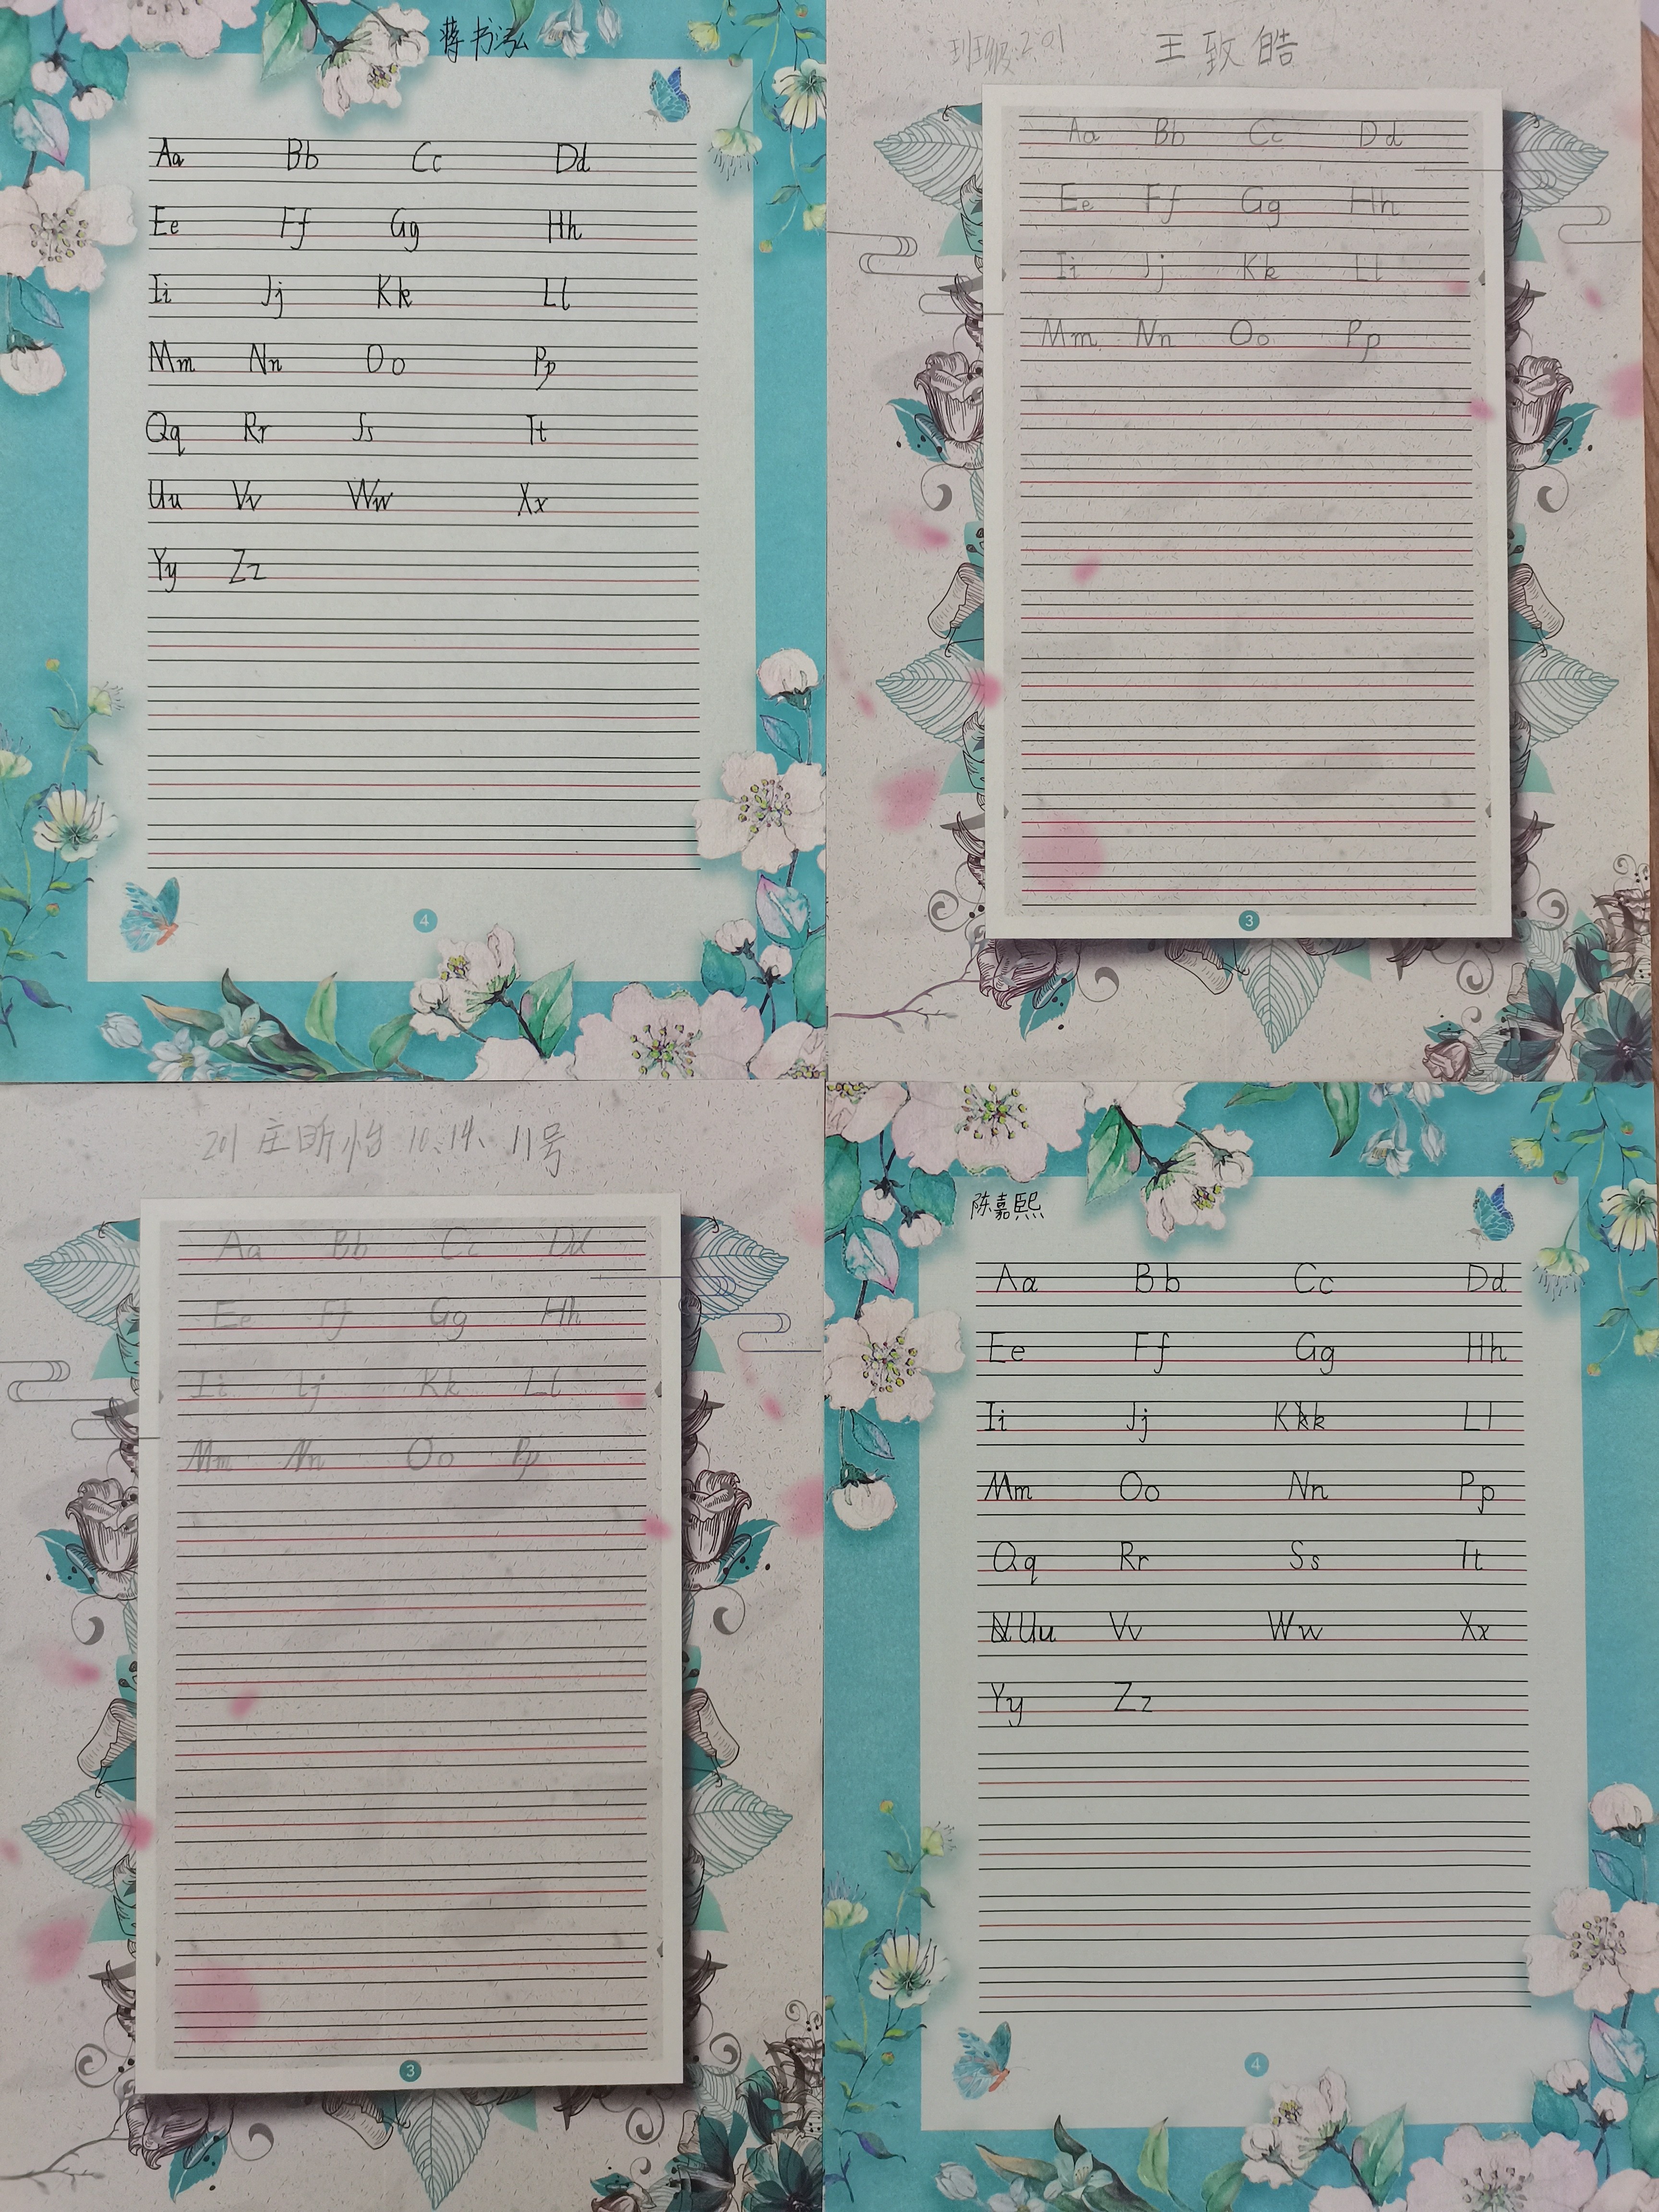 蒋书泓
Aa Bb Cc Dd
Ee Ff Gg Hh
Ii Jj Kk Ll
Mm Nn Oo Pp
Qq Rr Ss Tt
Uu Vv Ww Xx
Yy Zz
4
班级:201 王致皓
Aa Bb Cc Dd
Ee Ff Gg Hh
Ii Jj Kk Ll
Mm Nn Oo Pp
3
201 庄昕怡 10.14. 11号
Aa Bb Cc Dd
Ee Ff Gg Hh
Ii Jj Kk Ll
Mm Nn Oo Pp
3
陈嘉熙
Aa Bb Cc Dd
Ee Ff Gg Hh
Ii Jj Kk Ll
Mm Oo Nn Pp
Qq Rr Ss Tt
Uu Vv Ww Xx
Yy Zz
4